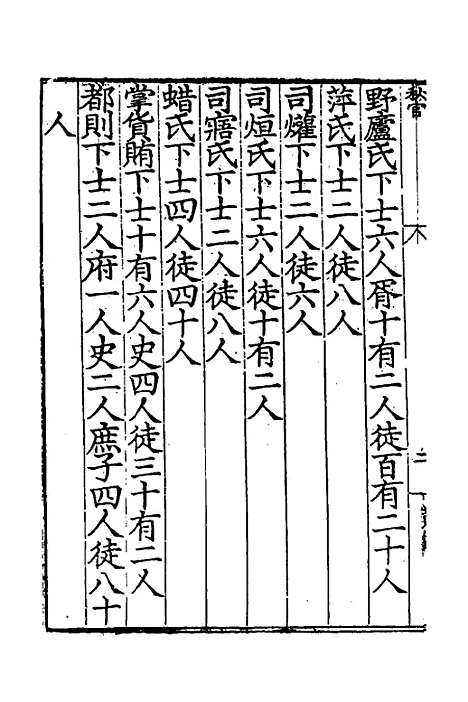 秋官
野廬氏下士六人胥十有二人徒百有二十人
萍氏下士二人徒八人
司爟下士二人徒六人
司烜氏下士六人徒十有二人
司寤氏下士二人徒八人
蜡氏下士四人徒四十人
掌貨賄下士十有六人史四人徒三十有二人
都則下士二人府一人史二人庶子四人徒八十
人